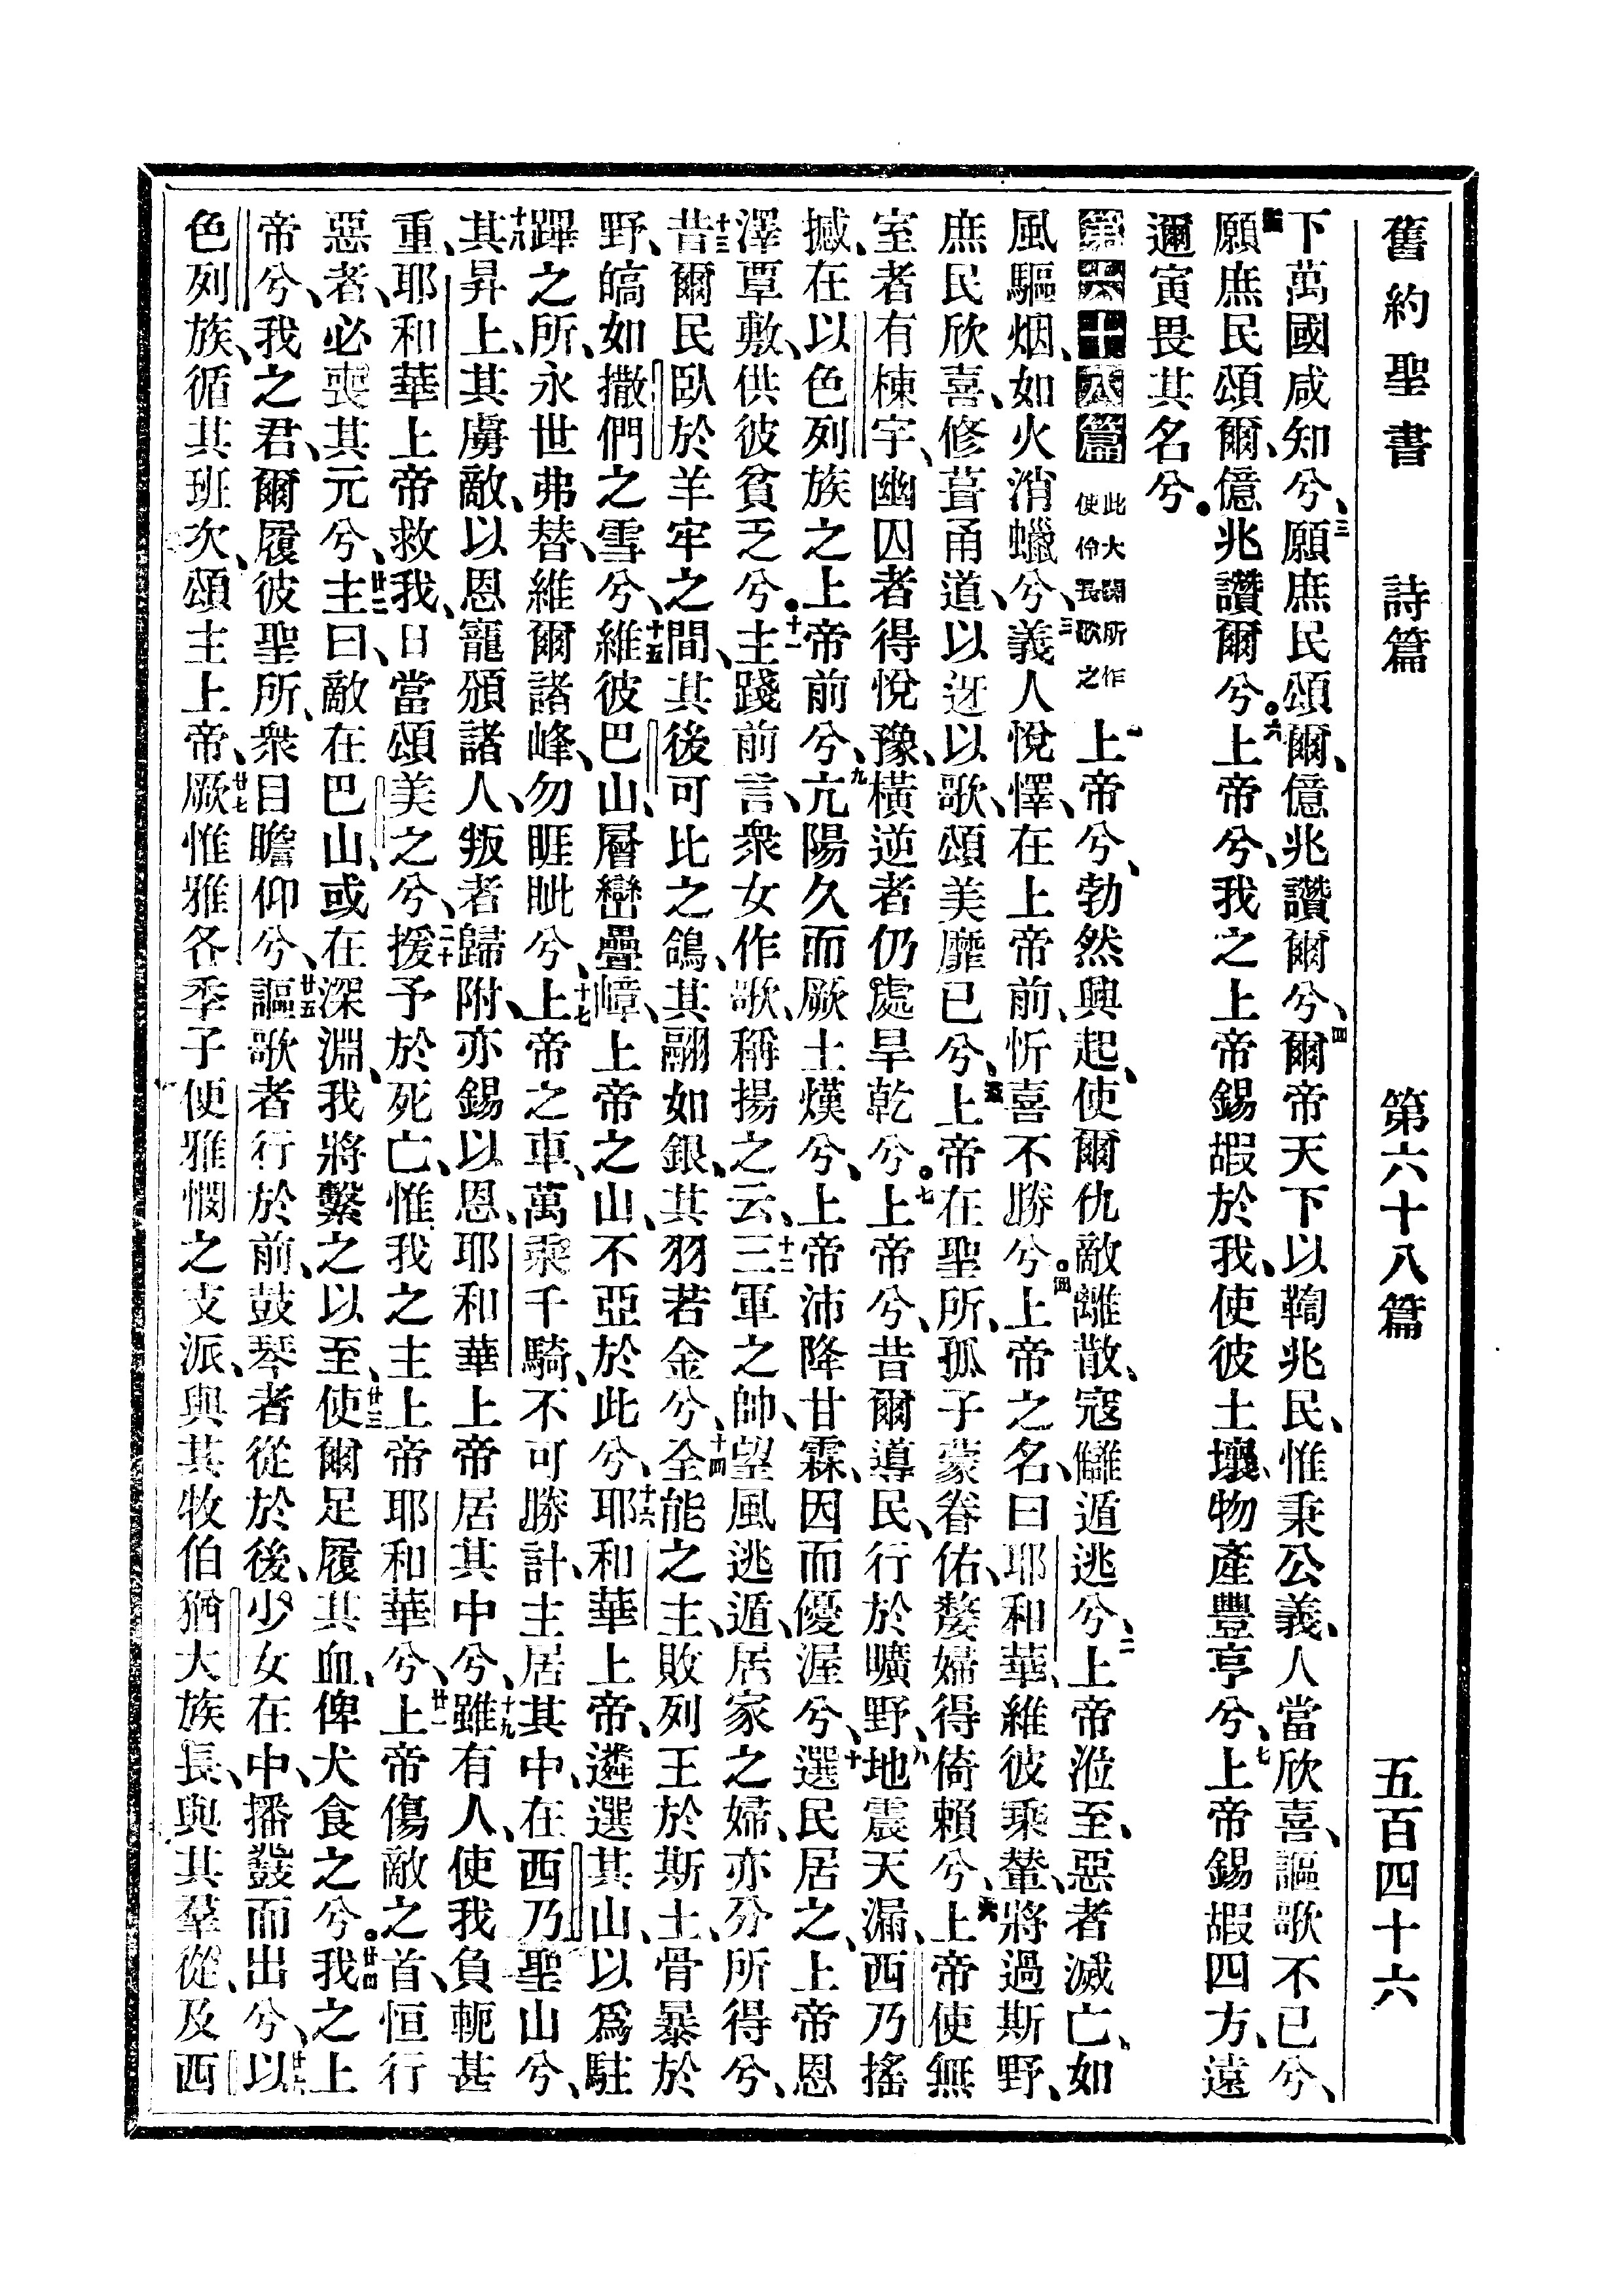 舊約聖書 詩篇 第六十八篇 五百四十六
下萬國咸知兮、三願庶民頌爾、億兆讚爾兮、四爾帝天下以鞫兆民、惟秉公義、人當欣喜、謳歌不已兮、
五願庶民頌爾、億兆讚爾兮。六上帝兮、我之上帝錫嘏於我、使彼土壤、物產豐亨兮、七上帝錫嘏四方、遠
邇寅畏其名兮。
第六十八篇 此大闢所作使伶長歌之 一上帝兮、勃然興起、使爾仇敵離散、寇讎遁逃兮、二上帝涖至、惡者滅亡、如
風驅烟、如火消蠟兮、三義人悅懌、在上帝前、忻喜不勝兮。四上帝之名、曰耶和華、維彼乘輦、將過斯野、
庶民欣喜、修葺甬道、以迓以歌、頌美靡已兮、五上帝在聖所、孤子蒙眷佑、嫠婦得倚賴兮、六上帝使無
室者有棟宇、幽囚者得悅豫、橫逆者仍處旱乾兮。七上帝兮、昔爾導民、行於曠野、八地震天漏、西乃搖
撼、在以色列族之上帝前兮、九亢陽久而厥土熯兮、上帝沛降甘霖、因而優渥兮、十選民居之、上帝恩
澤覃敷、供彼貧乏兮。十一主踐前言、衆女作歌、稱揚之云、十二三軍之帥、望風逃遁、居家之婦、亦分所得兮、
十三昔爾民臥於羊牢之間、其後可比之鴿、其翮如銀、其羽若金兮、十四全能之主、敗列王於斯土、骨暴於
野、皜如撒們之雪兮、十五維彼巴山、層巒疊嶂、上帝之山、不亞於此兮、十六耶和華上帝、遴選其山、以爲駐
蹕之所、永世弗替、維爾諸峰、勿睚眦兮、十七上帝之車、萬乘千騎、不可勝計、主居其中、在西乃聖山兮、
十八其昇上、其虜敵、以恩寵頒諸人、叛者歸附、亦錫以恩、耶和華上帝居其中兮、十九雖有人、使我負軛甚
重、耶和華上帝救我、日當頌美之兮、二十援予於死亡、惟我之主上帝耶和華兮、廿一上帝傷敵之首、恒行
惡者、必喪其元兮、廿二主曰、敵在巴山、或在深淵、我將繫之以至、廿三使爾足履其血、俾犬食之兮。廿四我之上
帝兮、我之君、爾履彼聖所、衆目瞻仰兮、廿五謳歌者行於前、鼓琴者從於後、少女在中、播鼗而出兮、廿六以
色列族、循其班次、頌主上帝、廿七厥惟雅各季子便雅憫之支派、與其牧伯猶大族長、與其羣從、及西